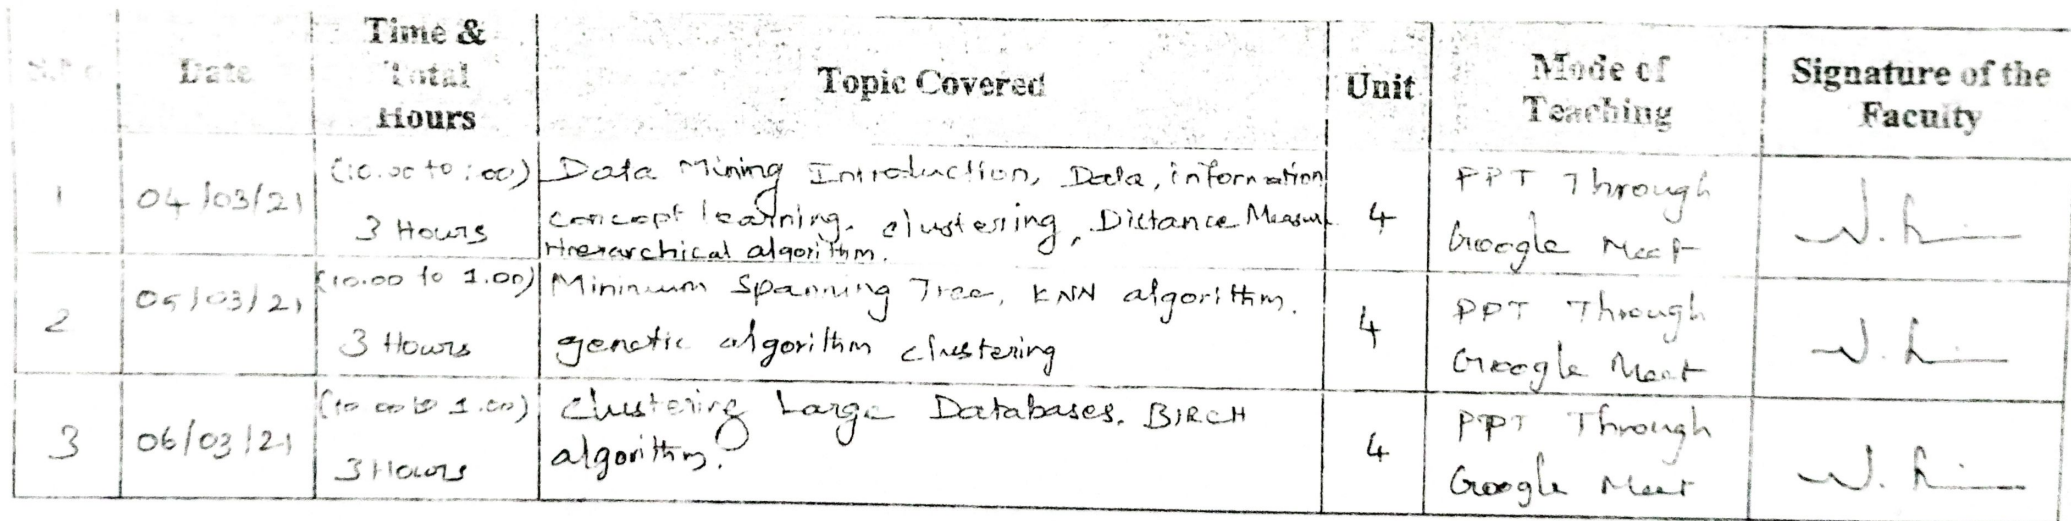 S.No Date Time & Total Hours Topic Covered Unit Mode of Teaching Signature of the Faculty
1 04/03/21 (10.00 to 1.00) Data Mining Introduction, Data, information
3 Hours concept learning, clustering, Dictance Measure 4 PPT Through
Hierarchical algorithm. Google Meet
2 05/03/21 (10.00 to 1.00) Minimum Spanning Tree, KNN algorithm.
3 Hours genetic algorithm clustering 4 PPT Through
Google Meet
3 06/03/21 (10.00 to 1.00) Clustering Large Databases. BIRCH
3 Hours algorithm. 4 PPT Through
Google Meet